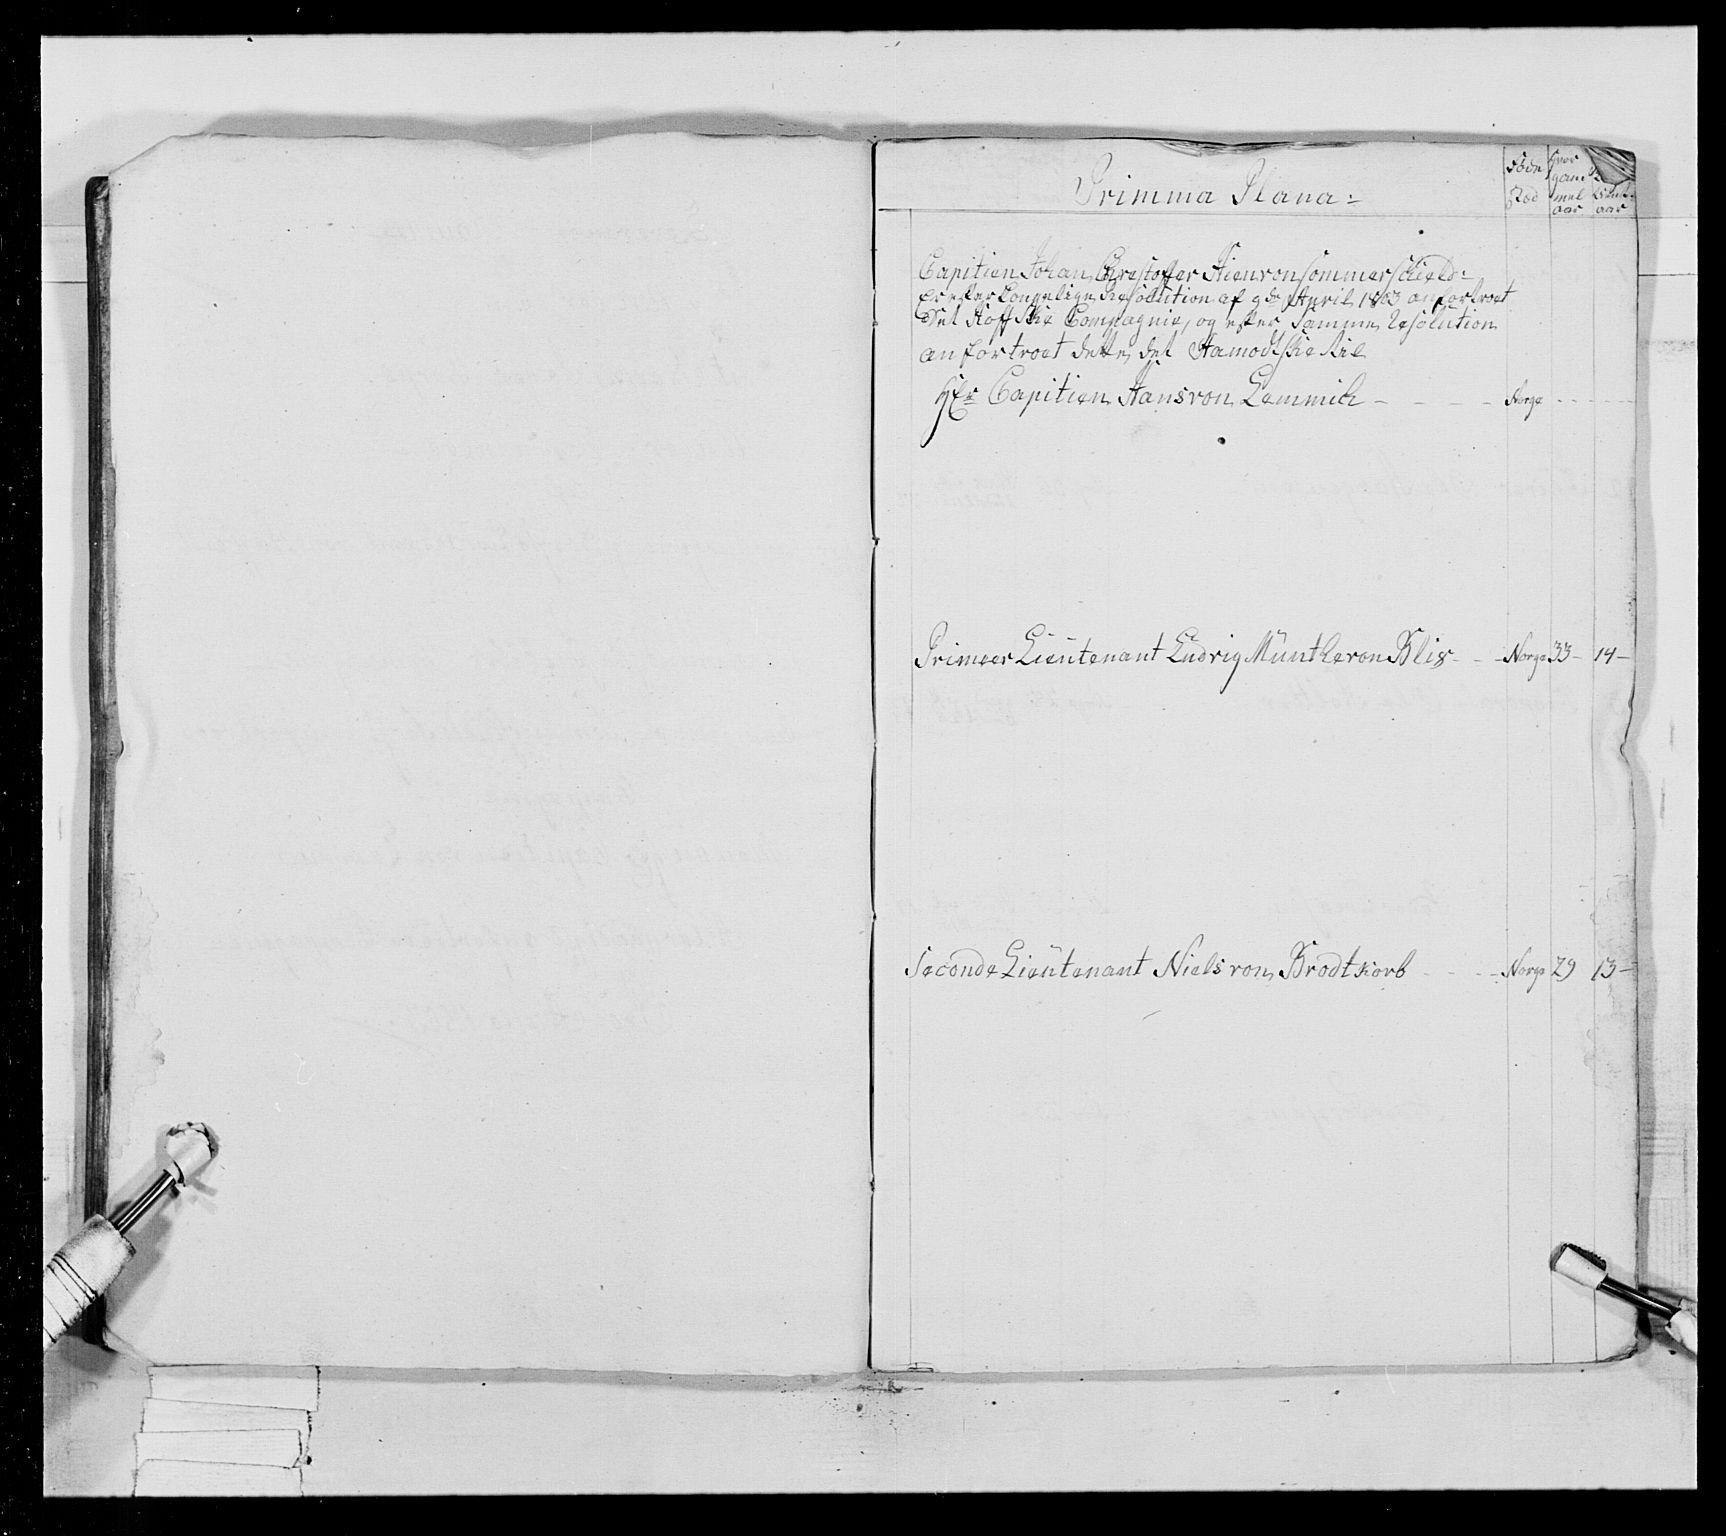 Primma Plana:
Føde
Stæd
Hvor
gam
mel
aar
tient
aar
Capitien Johan Chrestoffer Hienvon Sommerschield:
er efter Kongelige Resolution af 9de April 1803 anfortroet
det Hoffske Compagnie, og efter Samme Resolution
anfortroet dette, det til
Hr Capitien Hans von Lemmich - - - - Norge - - - -
Primeer Lieutenant Ludvig Munthe von Blix - - - Norge 33 - 14 -
Seconde Lieutenant Niels von Brodtkorb - - - - Norge 29 13 -